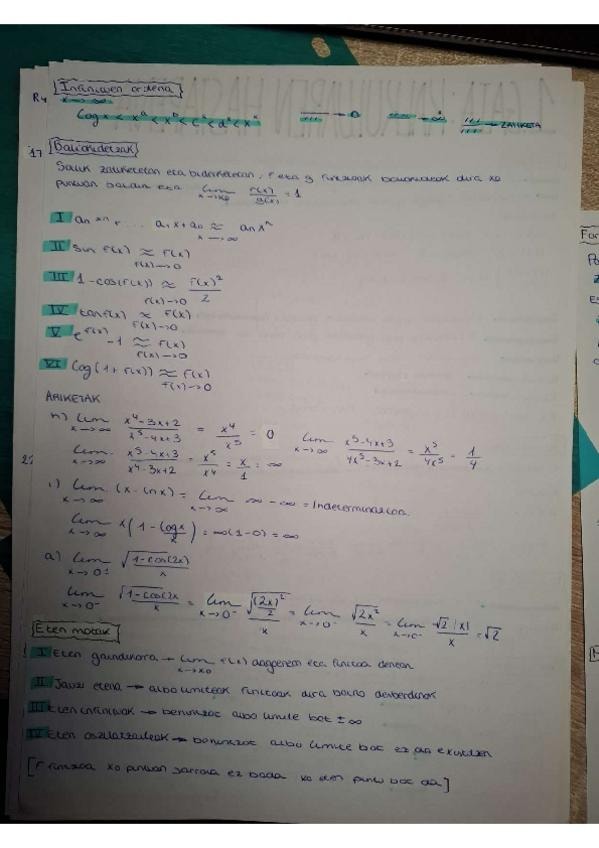 Infinituen ordena
R4 x→∞
log x < x^a < x^b < c^x < d^x < x^x → 0 → ∞ → ZATIKETA
17 Baliokidetzak
Soilik zatiketetan eta biderketetan, f eta g funtzioak baliokideak dira x0
puntuan baldin eta lim x→x0 f(x)/g(x) = 1
I an x^n + ... a1x + a0 ≈ an x^n
x→∞
II sin f(x) ≈ f(x)
f(x)→0
III 1-cos(f(x)) ≈ f(x)²/2
f(x)→0
IV tan f(x) ≈ f(x)
f(x)→0
V e^f(x) - 1 ≈ f(x)
f(x)→0
VI log(1+f(x)) ≈ f(x)
f(x)→0
ARIKETAK
h) lim x→∞ (x⁴-3x+2)/(x⁵-4x+3) = x⁴/x⁵ = 0 lim x→∞ (x⁵-4x+3)/(4x⁵-3x+2) = x⁵/4x⁵ = 1/4
lim x→∞ (x⁵-4x+3)/(x⁴-3x+2) = x⁵/x⁴ = x/1 = ∞
i) lim x→∞ (x-lnx) = lim x→∞ ∞-∞ = Indeterminazioa
lim x→∞ x(1 - logx/x) = ∞(1-0) = ∞
a) lim x→0± √(1-cos(2x))/x
lim x→0⁻ √(1-cos(2x/x = lim x→0⁻ √((2x)²/2)/x = lim x→0⁻ √(2x²)/x = lim x→0⁻ √2|x|/x = √2
Eten motak
I Eten gaindikorra → lim x→x0 f(x) existitzen eta finitoa denean
II Jauzi etena → albo limiteak finitoak dira baino desberdinak
III Eten infinituak → behintzat albo limite bat ±∞
IV Eten oszilatzaileak → behintzat albo limite bat ez da existitzen
[f funtzioa x0 puntuan jarraia ez bada x0 eten puntu bat da]